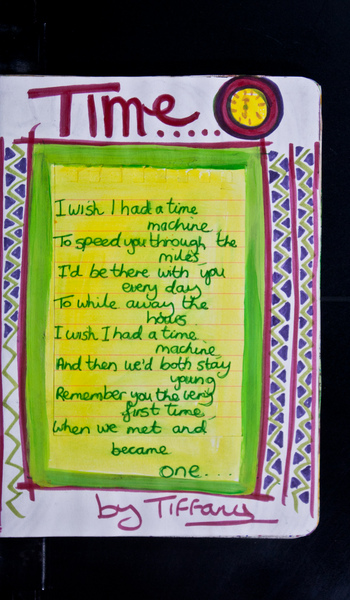 Time......
I wish I had a time
machine
To speed you through the
miles
I'd be there with you
every day
To while away the
hours
I wish I had a time
machine
And then we'd both stay
young
Remember you the very
first time,
When we met and
became
one....
by Tiffany